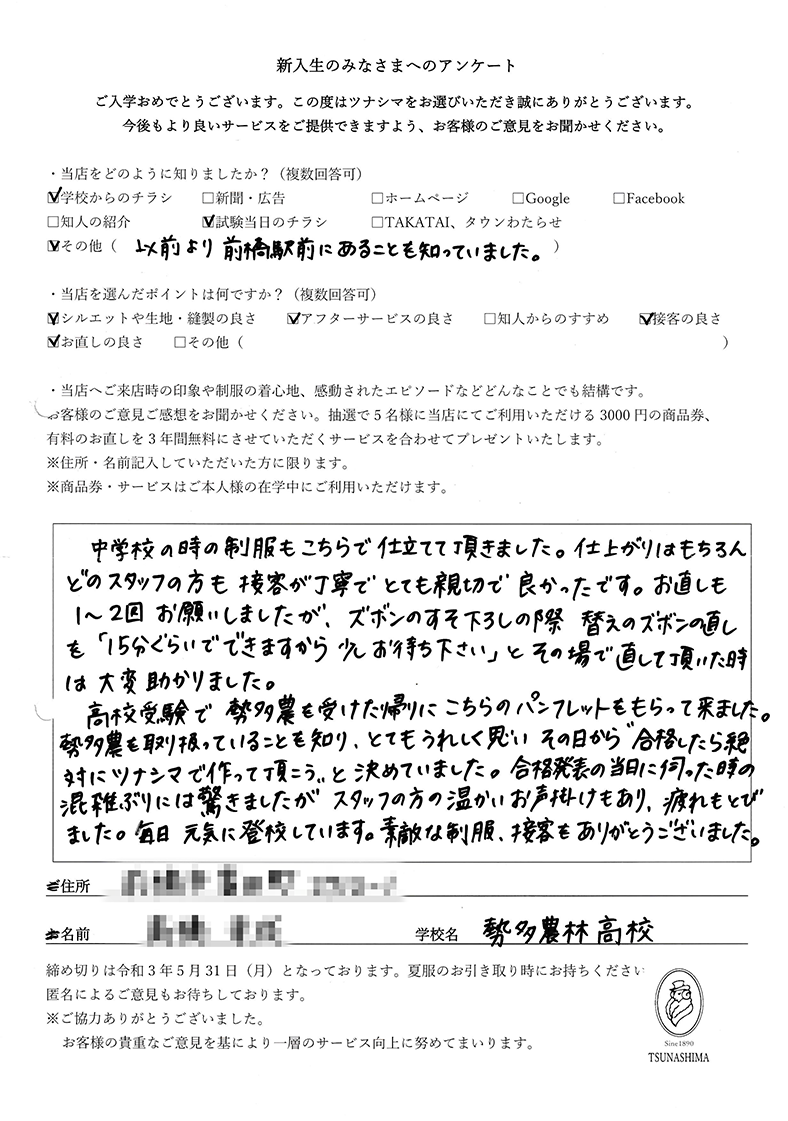 新入生のみなさまへのアンケート
ご入学おめでとうございます。この度はツナシマをお選びいただき誠にありがとうございます。
今後もより良いサービスをご提供できますよう、お客様のご意見をお聞かせください。
・当店をどのように知りましたか？（複数回答可）
☑学校からのチラシ □新聞・広告 □ホームページ □Google □Facebook
□知人の紹介 ☑試験当日のチラシ □TAKATAI、タウンわたらせ
☑その他（ 以前より前橋駅前にあることも知っていました。 ）
・当店を選んだポイントは何ですか？（複数回答可）
☑シルエットや生地・縫製の良さ ☑アフターサービスの良さ □知人からのすすめ ☑接客の良さ
☑お直しの良さ □その他（ ）
・当店へご来店時の印象や制服の着心地、感動されたエピソードなどどんなことでも結構です。
お客様のご意見ご感想をお聞かせください。抽選で5名様に当店にてご利用いただける3000円の商品券、
有料のお直しを3年間無料にさせていただくサービスを合わせてプレゼントいたします。
※住所・名前記入していただいた方に限ります。
※商品券・サービスはご本人様の在学中にご利用いただけます。
中学校の時の制服もこちらで仕立てて頂きました。仕上がりはもちろん
どのスタッフの方も接客が丁寧でとても親切で良かったです。お直しも
1～2回お願いしましたが、ズボンのすそ下ろしの際 替えのズボンの直し
も「15分ぐらいでできますから少しお待ち下さい」とその場で直して頂いた時
は大変助かりました。
高校受験で勢多農を受けた帰りにこちらのパンフレットももらって来ました。
勢多農も取り扱っていることも知り、とてもうれしく思い その日から"合格したら絶
対にツナシマで作って頂こう"と決めていました。合格発表の当日に伺った時の
混雑ぶりには驚きましたがスタッフの方の温かいお声掛けもあり、疲れもとび
ました。毎日 元気に登校しています。素敵な制服、接客をありがとうございました。
住所
名前 学校名 勢多農林高校
締め切りは令和3年5月31日（月）となっております。夏服のお引き取り時にお持ちくださ
匿名によるご意見もお待ちしております。
※ご協力ありがとうございました。
お客様の貴重なご意見を基により一層のサービス向上に努めてまいります。
Sine1890
TSUNASHIMA